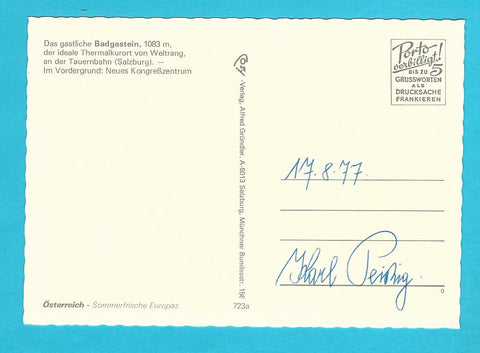 Das gastliche Badgastein, 1083 m,
der ideale Thermalkurort von Weltrang,
an der Tauernbahn (Salzburg). —
Im Vordergrund: Neues Kongreßzentrum
Porto
verbilligt!
BIS ZU 5
GRUSSWORTEN
ALS
DRUCKSACHE
FRANKIEREN
-Verlag, Alfred Gründler, A-5013 Salzburg, Münchner Bundesstr. 156
723a
17.8.77.
Karl
Österreich - Sommerfrische Europas
0